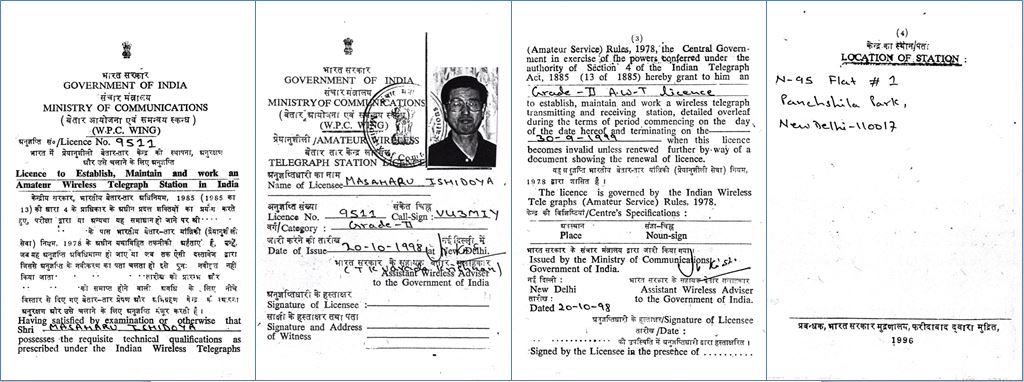 भारत सरकार
GOVERNMENT OF INDIA
संचार मंत्रालय
MINISTRY OF COMMUNICATIONS
(बेतार आयोजना एवं समन्वय स्कन्ध)
(W.P.C. WING)
अनुज्ञप्ति सं०/Licence No. 9511
भारत में प्रेयानुशीली बेतार-तार केन्द्र की स्थापना, अनुरक्षण
और उसे चलाने के लिए अनुज्ञप्ति
Licence to Establish, Maintain and work an
Amateur Wireless Telegraph Station in India
केन्द्रीय सरकार, भारतीय बेतार-तार अधिनियम, 1985 (1985 का
13) की धारा 4 के प्राधिकार के अधीन प्रदत्त शक्तियों का प्रयोग करते
हुए, परीक्षा द्वारा या अन्यथा यह समाधान हो जाने पर श्री
के पास भारतीय बेतार-तार यांत्रिकी (प्रेयानुशीली
सेवा) नियम, 1978 के अधीन यथाविहित तकनीकी अर्हताएं हैं, उन्हें,
जब यह अनुज्ञप्ति अविधिमान्य हो जाए या जब तक ऐसी दस्तावेज द्वारा
जिससे अनुज्ञप्ति के नवीकरण का पता चलता हो इसे पुनः नवीकृत नहीं
किया जाता तारीख को प्रारंभ और
को समाप्त होने वाली अवधि के लिए नीचे
विस्तार से दिए गए बेतार-तार प्रेषण और अभिग्रहण केन्द्र की स्थापना
अनुरक्षण और उसे चलाने के लिए अनुज्ञप्ति मंजूर करती है।
Having satisfied by examination or otherwise that
Shri MASAHARU ISHIDOYA
possesses the requisite technical qualifications as
prescribed under the Indian Wireless Telegraphs
भारत सरकार
GOVERNMENT OF INDIA
संचार मंत्रालय
MINISTRY OF COMMUNICATIONS
(बेतार आयोजना एवं समन्वय स्कन्ध)
(W.P.C. WING)
प्रेयानुशीली/AMATEUR WIRELESS
बेतार तार केन्द्र
TELEGRAPH STATION LICENCE
अनुज्ञप्तिधारी का नाम
Name of Licensee MASAHARU ISHIDOYA
अनुज्ञप्ति संख्या संकेत चिह्न
Licence No. 9511 Call-Sign VU3MIY
वर्ग/Category : Grade-II
जारी करने की तारीख नई दिल्ली, में
Date of Issue 20-10-1998 at New Delhi.
भारत सरकार के सहायक बेतार-सलाहकार
Assistant Wireless Adviser
to the Government of India
अनुज्ञप्तिधारी के हस्ताक्षर
Signature of Licensee :
साक्षी के हस्ताक्षर तथा पता
Signature and Address
of Witness
(3)
(Amateur Service) Rules, 1978, the Central Govern-
ment in exercise of the powers conferred under the
authority of Section 4 of the Indian Telegraph
Act, 1885 (13 of 1885) hereby grant to him an
Grade-II A.W.T licence
to establish, maintain and work a wireless telegraph
transmitting and receiving station, detailed overleaf
during the terms of period commencing on the day
of the date hereof and terminating on the
30-9-1999 when this licence
becomes invalid unless renewed further by way of a
document showing the renewal of licence.
यह अनुज्ञप्ति भारतीय बेतार-तार यांत्रिकी (प्रेयानुशीली सेवा) नियम,
1978 द्वारा शासित है।
The licence is governed by the Indian Wireless
Tele graphs (Amateur Service) Rules, 1978.
केन्द्र की विशिष्टियां/Centre's Specifications :
स्थान संज्ञा-चिह्न
Place Noun-sign
भारत सरकार के संचार मंत्रालय द्वारा जारी किया गया
Issued by the Ministry of Communications
Government of India.
नई दिल्ली : भारत सरकार के सहायक बेतार सलाहकार
New Delhi Assistant Wireless Adviser
तारीख : to the Government of India.
Dated 20-10-98
अनुज्ञप्तिधारी के हस्ताक्षर/Signature of Licensee
तारीख /Date :
की उपस्थिति में अनुज्ञप्तिधारी द्वारा हस्ताक्षरित।
Signed by the Licensee in the presence of ..........
(4)
केन्द्र का स्थान/पता:
LOCATION OF STATION :
N-95 Flat # 1
Panchshila Park,
New Delhi-110017
प्रबन्धक, भारत सरकार मुद्रणालय, फरीदाबाद द्वारा मुद्रित,
1996